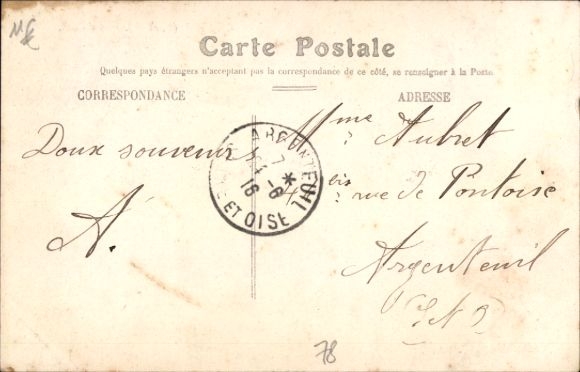 Carte Postale
Quelques pays étrangers n'acceptant pas la correspondance de ce côté, se renseigner à la Poste
CORRESPONDANCE
ADRESSE
Doux souvenirs
A.
Mme Aubret
bis rue de Pontoise
Argenteuil
ARGENTEUIL
ET OISE
16
78